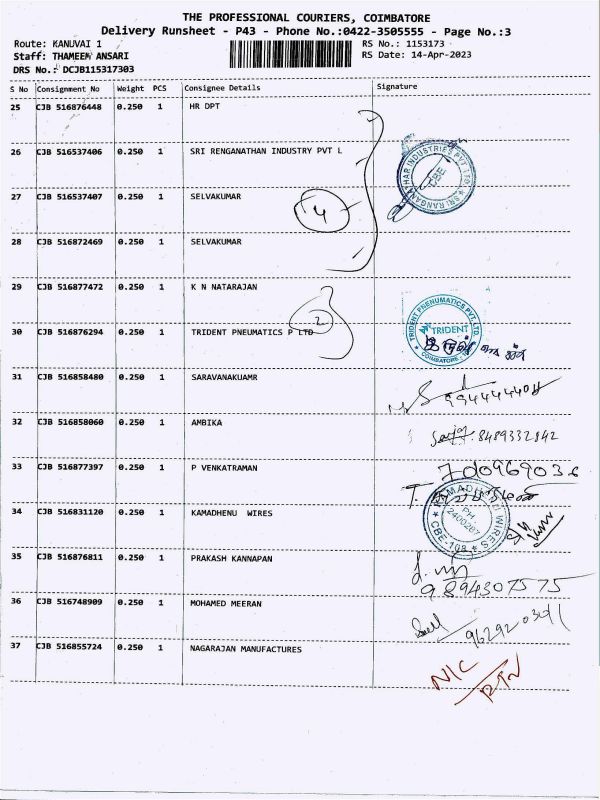 THE PROFESSIONAL COURIERS, COIMBATORE
Delivery Runsheet - P43 - Phone No.:0422-3505555 - Page No.:3
Route: KANUVAI 1
RS No.: 1153173
Staff: THAMEEM ANSARI
RS Date: 14-Apr-2023
DRS No.: DCJB115317303
S No Consignment No Weight PCS Consignee Details Signature
25 CJB 516876448 0.250 1 HR DPT
26 CJB 516537406 0.250 1 SRI RENGANATHAN INDUSTRY PVT L
SRI RANGANATHAR INDUSTRIES PVT LTD
CBE
27 CJB 516537407 0.250 1 SELVAKUMAR
4
28 CJB 516872469 0.250 1 SELVAKUMAR
29 CJB 516877472 0.250 1 K N NATARAJAN
2
30 CJB 516876294 0.250 1 TRIDENT PNEUMATICS P LTD
TRIDENT PNEUMATICS PVT. LTD.
TRIDENT
COIMBATORE
31 CJB 516858480 0.250 1 SARAVANAKUAMR
32 CJB 516858060 0.250 1 AMBIKA
8489332842
33 CJB 516877397 0.250 1 P VENKATRAMAN
7010969036
34 CJB 516831120 0.250 1 KAMADHENU WIRES
KAMADHENU WIRES
PH
2400287
CBE-108
35 CJB 516876811 0.250 1 PRAKASH KANNAPAN
9894307575
36 CJB 516748909 0.250 1 MOHAMED MEERAN
37 CJB 516855724 0.250 1 NAGARAJAN MANUFACTURES
N/C
RTN